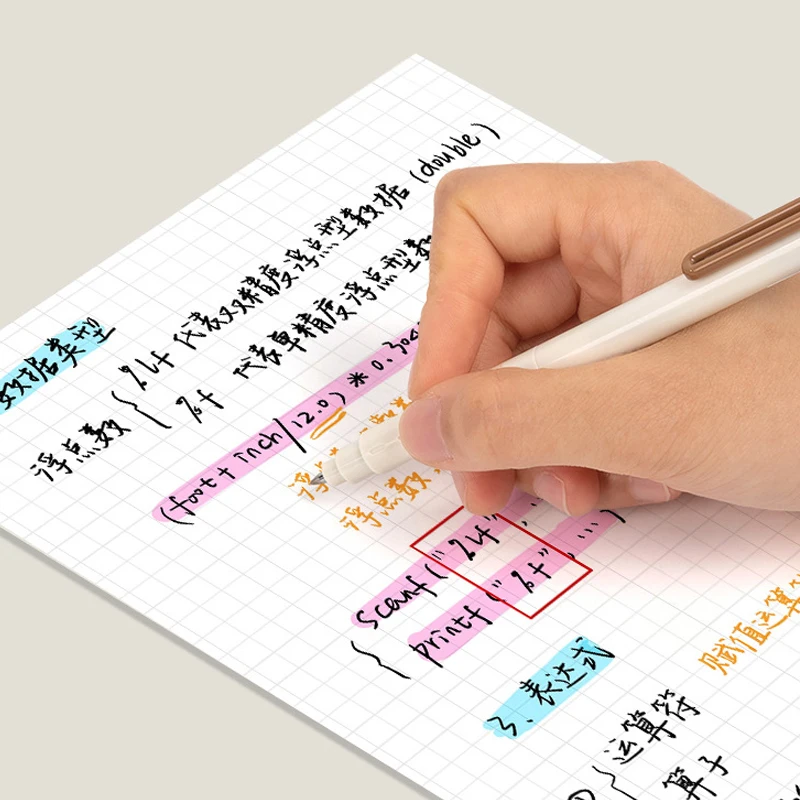 数据类型
浮点数 { %lf 代表双精度浮点型数据 (double)
%f 代表单精度浮点型数
(foot + inch/12.0) * 0.30
浮
浮点数
{ scanf("%lf", ...
printf("%f", ...)
3、表达式
赋值运算
① { 运算符
算子